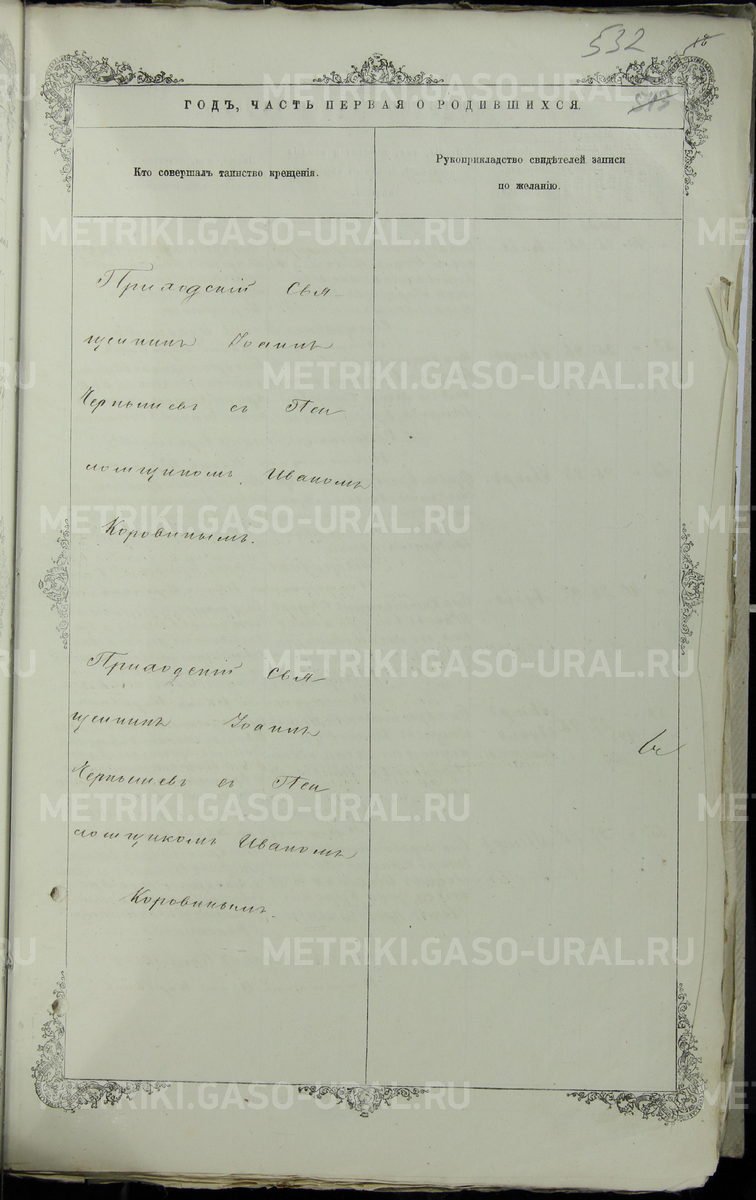 532
18
513
ГОДЪ, ЧАСТЬ ПЕРВАЯ О РОДИВШИХСЯ.
Кто совершалъ таинство крещенія.
Рукоприкладство свидѣтелей записи
по желанію.
Приходскій Свя
щенникъ Іоаннъ
Чернышевъ съ Пса
ломщикомъ Иваномъ
Коровинымъ.
Приходскій Свя
щенникъ Іоаннъ
Чернышевъ съ Пса
ломщикомъ Иваномъ
Коровинымъ.
METRIKI.GASO-URAL.RU